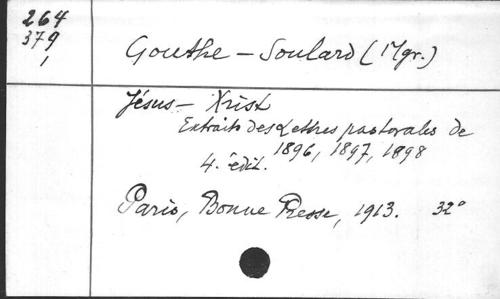 264
379
1
Gouthe-Soulard (Mgr.)
Jésus-Xrist
Extraits des Lettres pastorales de
1896, 1897, 1898
4. édit.
Paris, Bonne Presse, 1913. 32°